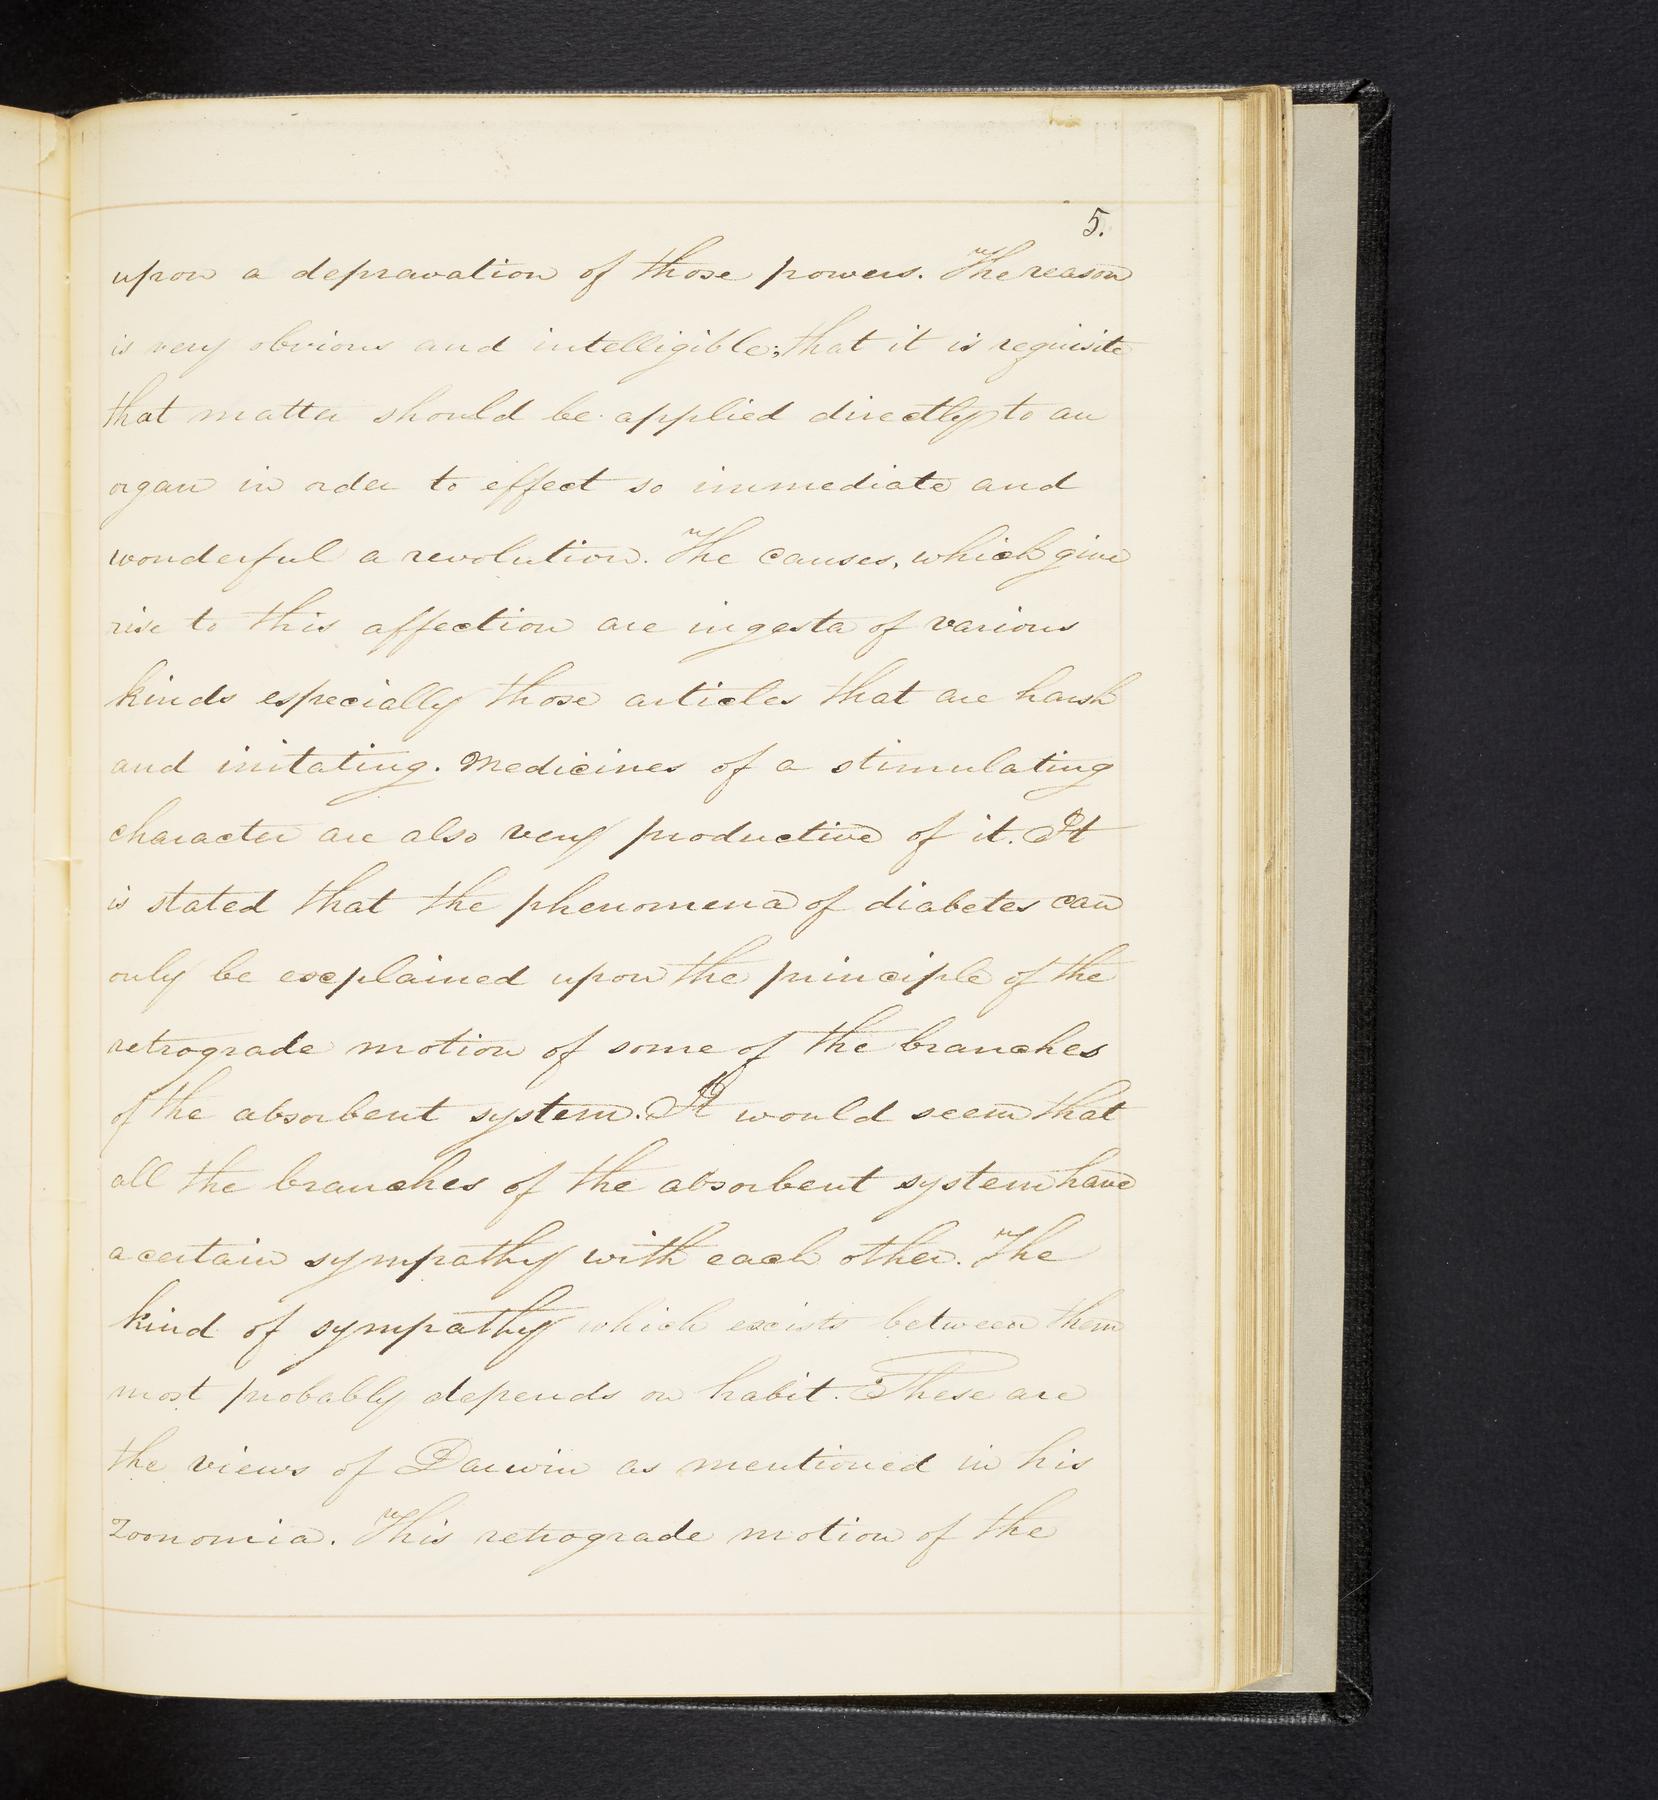 5.
upon a depravation of those powers. The reason
is very obvious and intelligible; that it is requisite
that matter should be applied directly to an
organ in order to effect so immediate and
wonderful a revolution. The causes, which give
rise to this affection are ingesta of various
kinds especially those articles that are harsh
and irritating. Medicines of a stimulating
character are also very productive of it. It
is stated that the phenomena of diabetes can
only be explained upon the principle of the
retrograde motion of some of the branches
of the absorbent system. It would seem that
all the branches of the absorbent system have
a certain sympathy with each other. The
kind of sympathy which exists between them
most probably depends on habit. These are
the views of Darwin as mentioned in his
Zoonomia. This retrograde motion of the